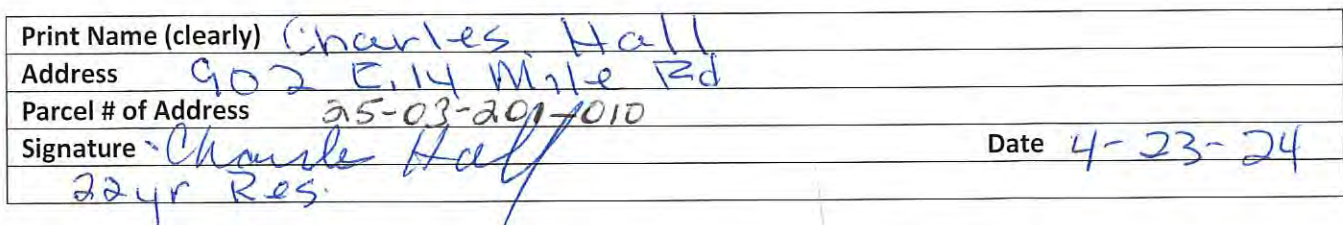 Print Name (clearly) Charles Hall
Address 902 E. 14 Mile Rd
Parcel # of Address 25-03-201-010
Signature Charles Hall Date 4-23-24
22 yr Res.